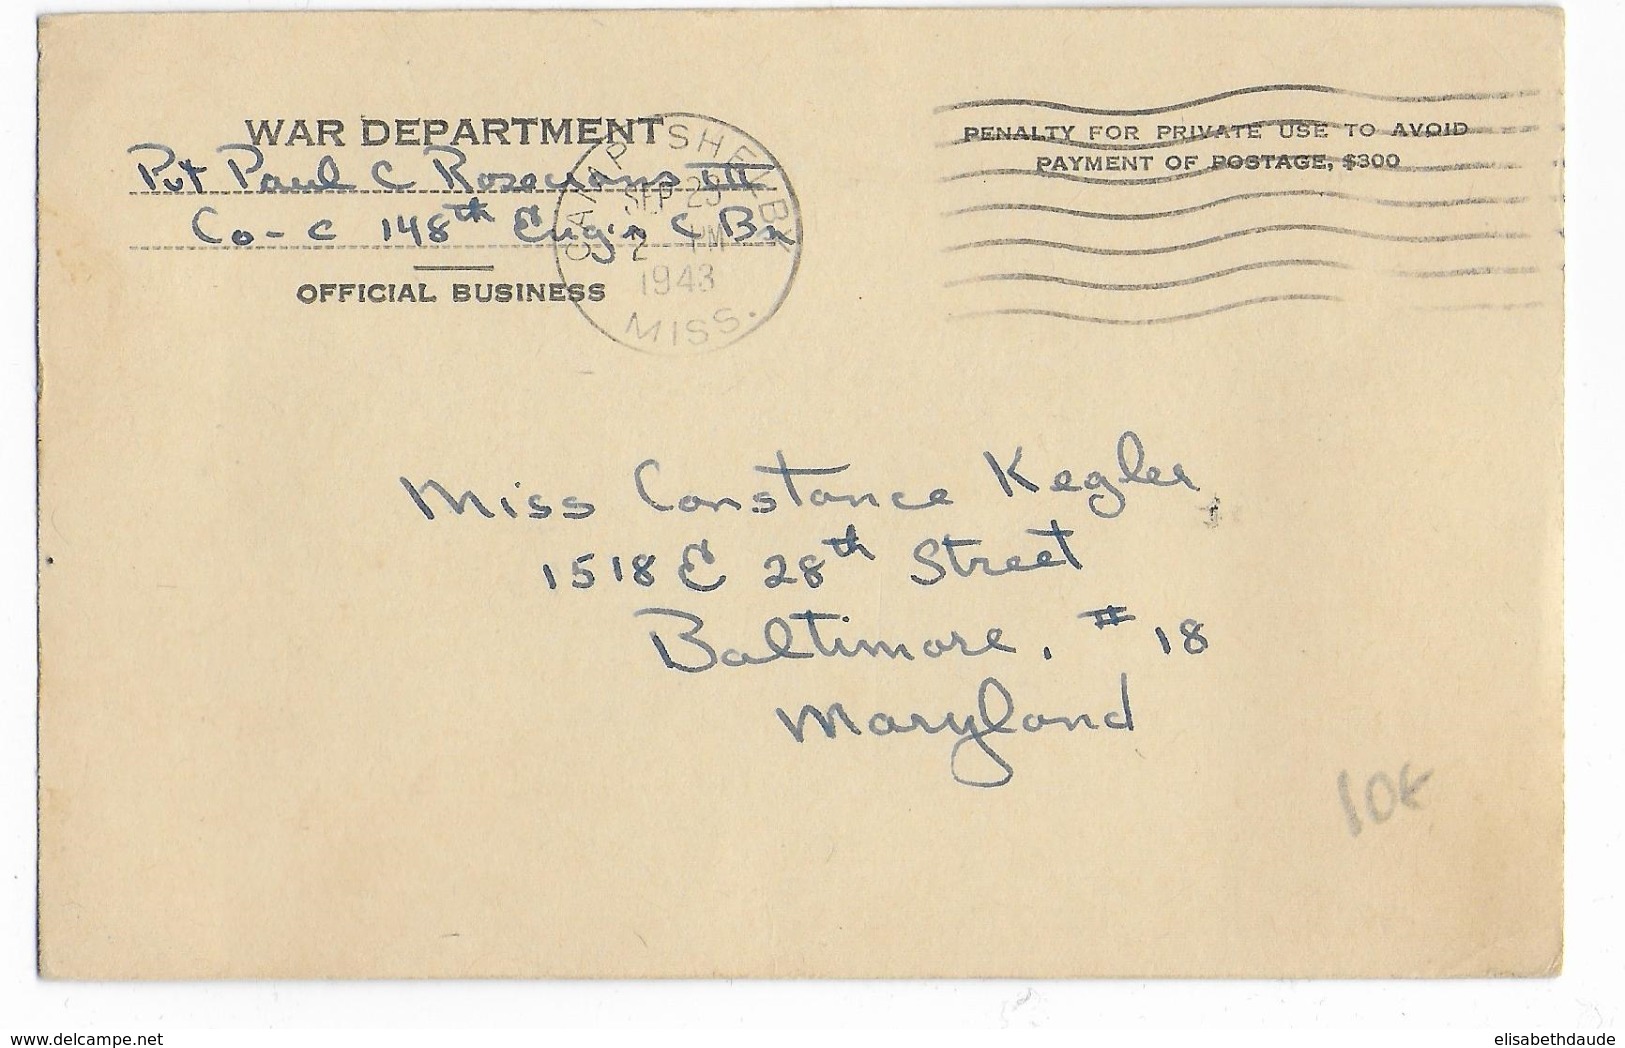 WAR DEPARTMENT
Pvt Paul C Rosecrans III
Co-C 148th Eng'r C Bn
OFFICIAL BUSINESS
CAMP SHELBY
SEP 25
2 PM
1943
MISS.
PENALTY FOR PRIVATE USE TO AVOID
PAYMENT OF POSTAGE, $300
Miss Constance Kegler
1518 E 28th Street
Baltimore, #18
Maryland
10€
delcampe.net
elisabethdaude